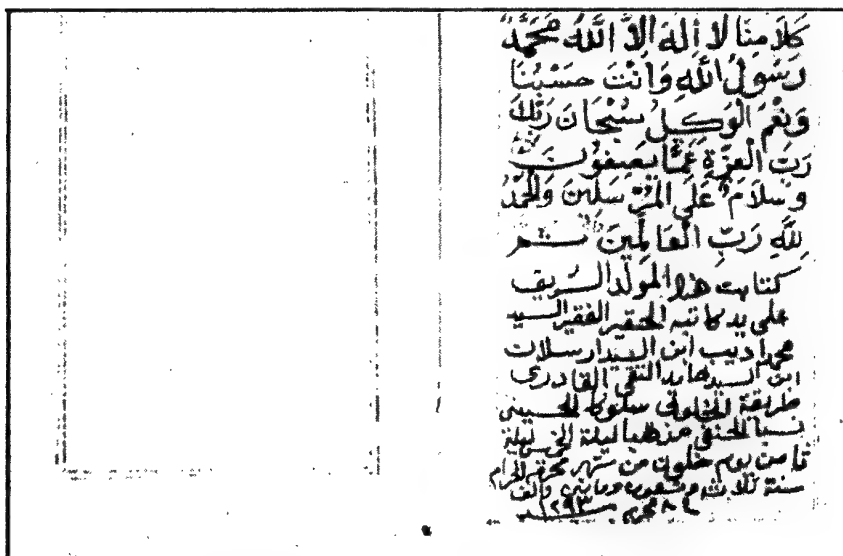 كَلَامِنَا لَا إِلَهَ إِلَّا اللَّهُ مُحَمَّدٌ
رَسُولُ اللَّهِ وَأَنْتَ حَسْبُنَا
وَنِعْمَ الْوَكِيلُ سُبْحَانَ رَبِّكَ
رَبِّ الْعِزَّةِ عَمَّا يَصِفُونَ
وَسَلَامٌ عَلَى الْمُرْسَلِينَ وَالْحَمْدُ
لِلَّهِ رَبِّ الْعَالَمِينَ
كتابت هذا المولد الشريف
على يد كاتبه الحقير الفقير السيد
محمد اديب ابن السيد ارسلان
ابن السيد حامد التقي القادري
طريقة الخلوتي سلوكا الحسيني
نسبا الحنفي مذهبا ليلة الخميس ليلة
ثامن يوم خلون من شهر محرم الحرام
سنة ثلاث وتسعون ومايتين والف
٨ محرم سنة ١٢٩٣